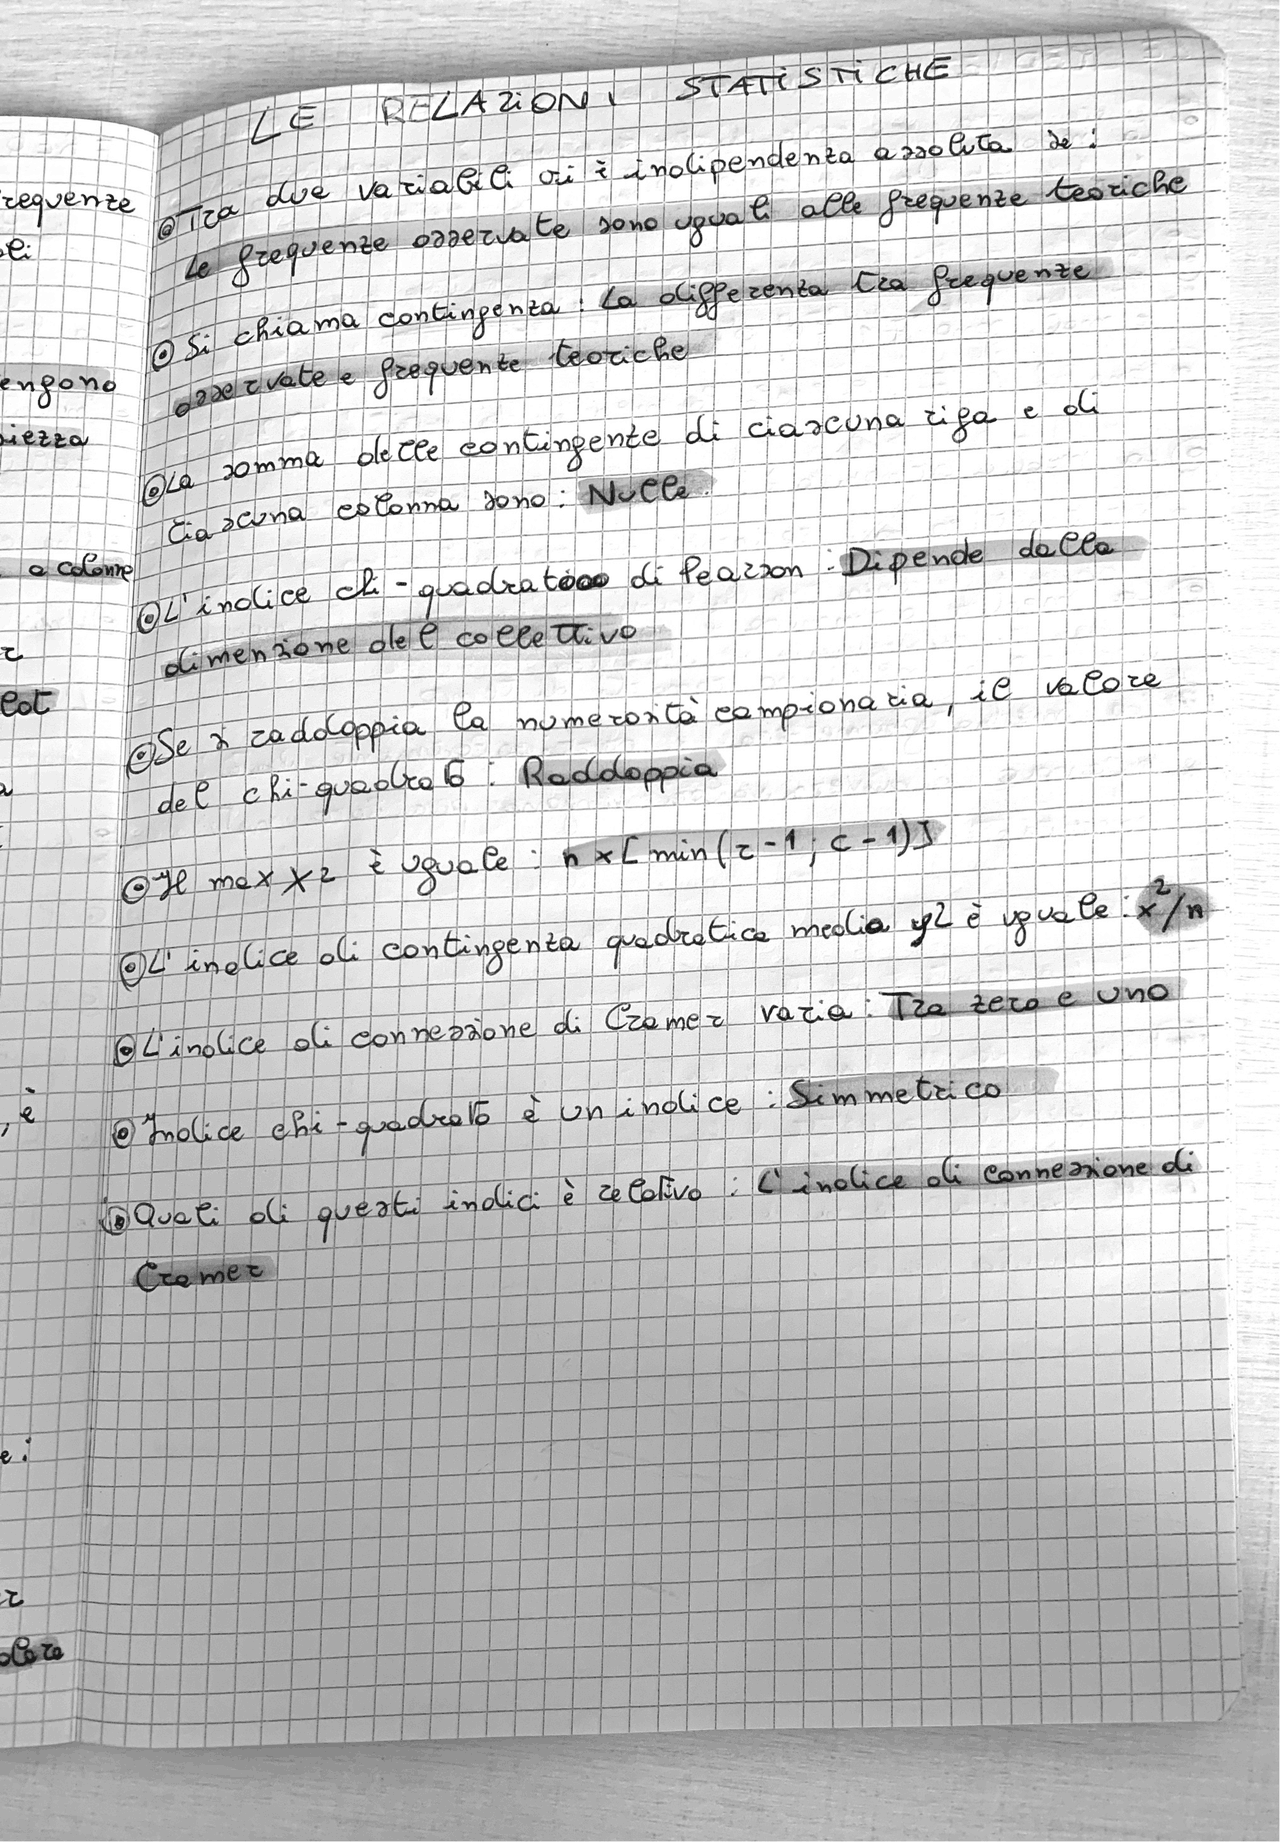 LE RELAZIONI STATISTICHE
Tra due variabili vi è indipendenza assoluta se:
Le frequenze osservate sono uguali alle frequenze teoriche
Si chiama contingenza: La differenza tra frequenze
osservate e frequenze teoriche
La somma delle contingenze di ciascuna riga e di
ciascuna colonna sono: Nulle.
L'indice chi-quadrato di Pearson: Dipende dalla
dimensione del collettivo
Se si raddoppia la numerosità campionaria, il valore
del chi-quadrato: Raddoppia
Il max X2 è uguale: n x [min(r-1; c-1)]
L'indice di contingenza quadratica media φ2 è uguale: x²/n
L'indice di connessione di Cramer varia: Tra zero e uno
Indice chi-quadrato è un indice: Simmetrico
Quali di questi indici è relativo: L'indice di connessione di
Cramer
requenze
engono
piezza
a colonne
, è
e: